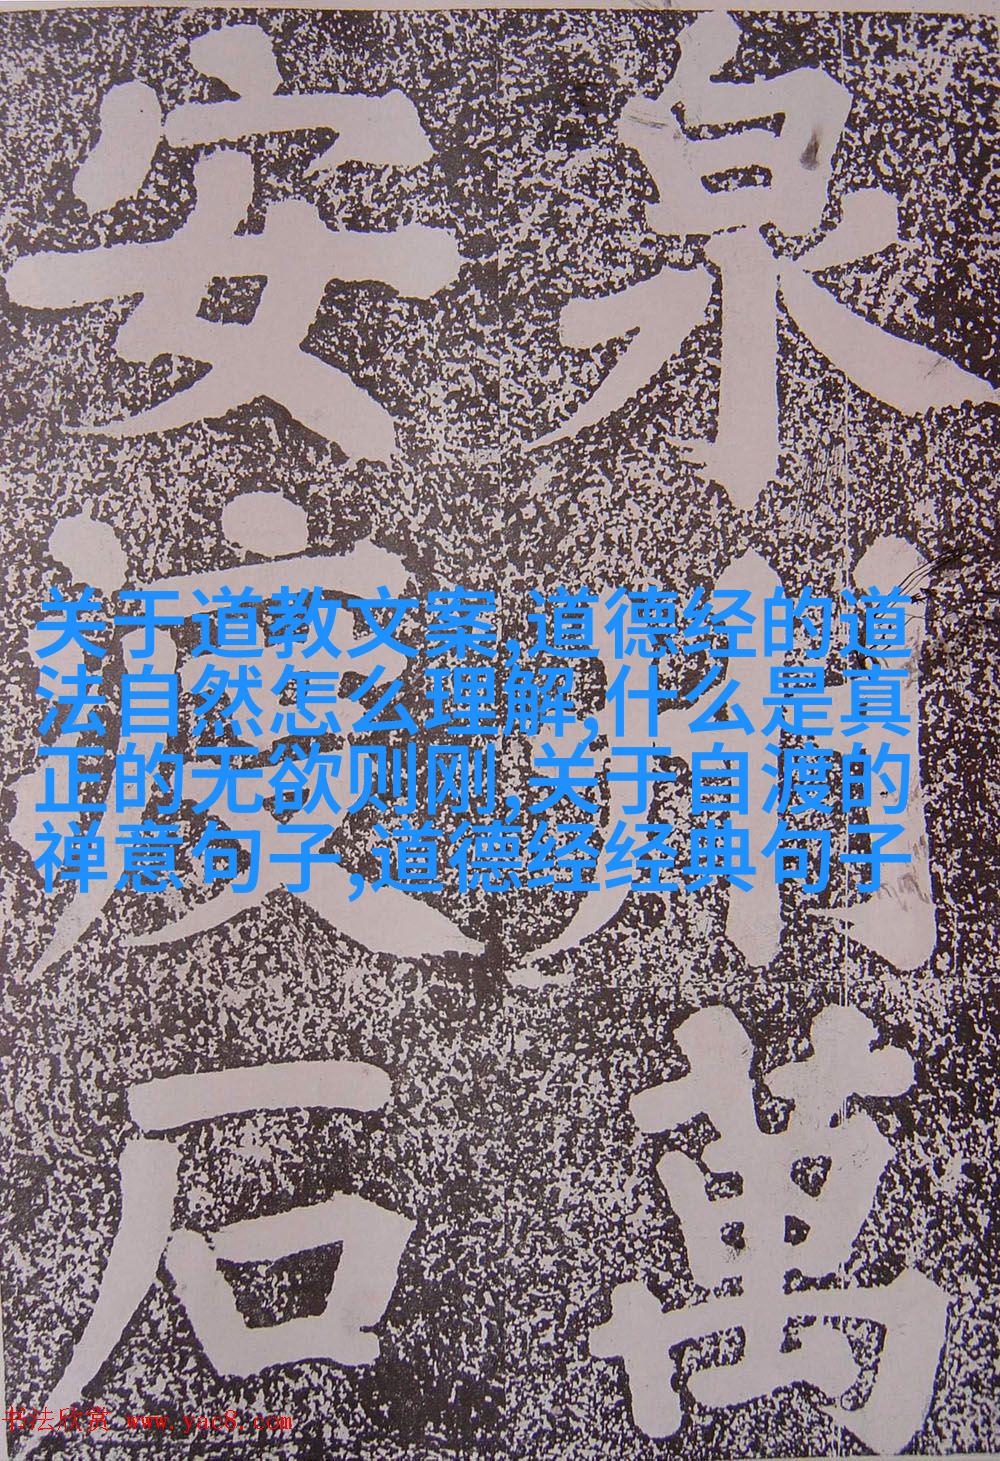 泉州萬
安渡石
关于道教文案,道德经的道
法自然怎么理解,什么是真
正的无欲则刚,关于自渡的
禅意句子,道德经经典句子
书法欣赏 www.yac8.com